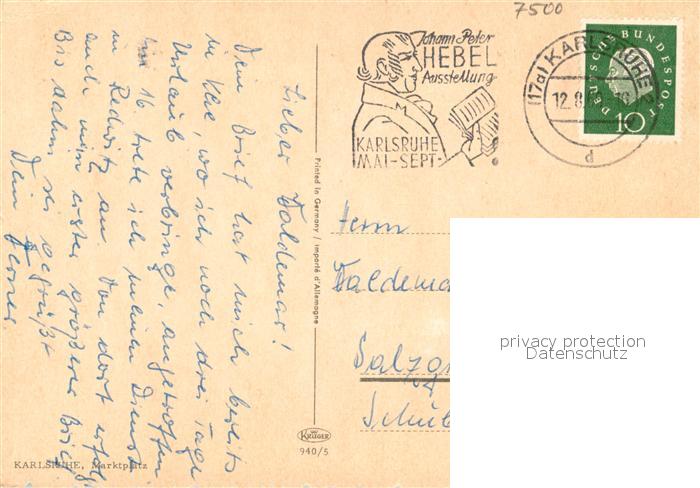 7500
Johann Peter
HEBEL
Ausstellung
KARLSRUHE
MAI-SEPT-
(17a) KARLSRUHE 2
12.8.
d
DEUTSCHE BUNDESPOST
10
Lieber Waldemar!
Dein Brief hat mich bereits
in Khe wo ich noch drei Tage
Urlaub verbringe, angetroffen
Am 16 trete ich meinen Dienst
in Redwitz an. Von dort erfolgt
auch mein erster größerer Brief
Bis dahin sei gegrüßt
Dein Werner
Printed in Germany / Importé d'Allemagne
KRÜGER
940/5
KARLSRUHE, Marktplatz
Herrn
Waldema
Salzg
Schul
privacy protection
Datenschutz